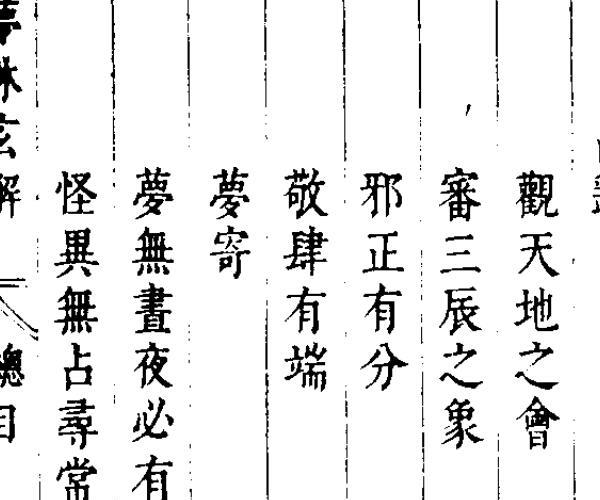 觀天地之會
審三辰之象
邪正有分
敬肆有端
夢寄
夢無晝夜必有
怪異無占尋常
夢林玄解 總目